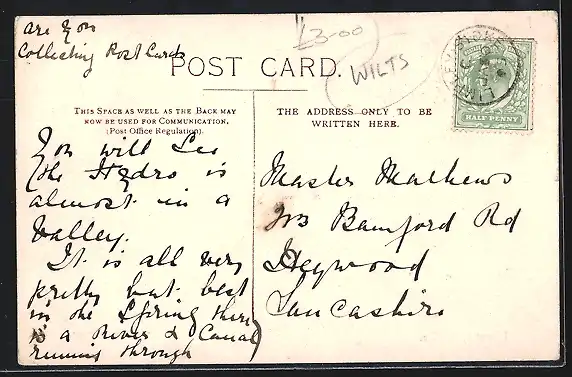 are you
Collecting Post Cards
£3-00
WILTS
POST CARD.
THIS SPACE AS WELL AS THE BACK MAY
NOW BE USED FOR COMMUNICATION.
(Post Office Regulation).
THE ADDRESS ONLY TO BE
WRITTEN HERE.
HALF PENNY
You will See
the Hydro is
almost in a
Valley.
It is all very
pretty but best
in the Spring there
is a River & Canal
running through
Master Mathews
Bamford Rd
Heywood
Lancashire